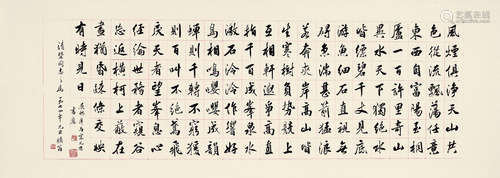 風煙俱浄天山共
色從流飄蕩任意
東西自富陽至桐
廬一百許里奇山
異水天下獨絕水
皆縹碧千丈見底
游魚細石直視無
碍急湍甚箭猛浪
若奔夾岸高山皆
生寒樹負勢競上
互相軒邈爭高直
指千百成峯泉水
激石泠泠作響好
鳥相鳴嚶嚶成韻
蟬則千轉不窮猿
則百叫無絕鳶飛
戾天者望峯息心
經綸世務者窺谷
忘返橫柯上蔽在
晝猶昏疏條交映
有時見日